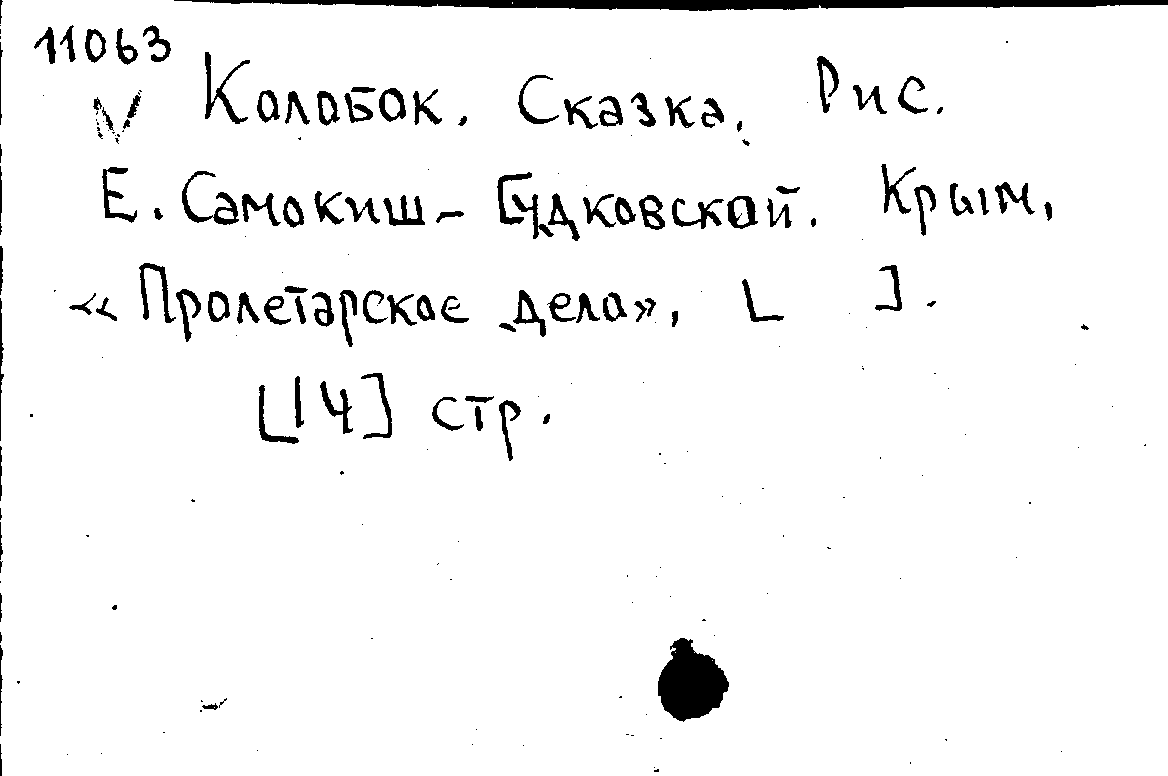 11063
Колобок. Сказка. Рис.
Е. Самокиш-Судковской. Крым,
«Пролетарское дело», [ ].
[14] стр.